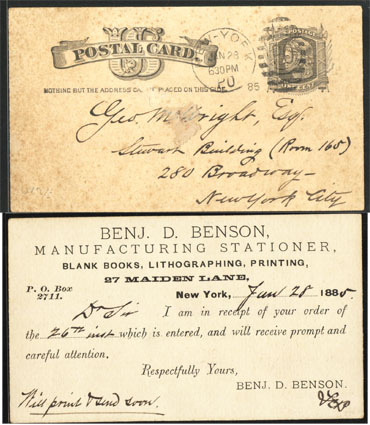 POSTAL CARD
US
NOTHING BUT THE ADDRESS CAN BE PLACED ON THIS SIDE.
NEW-YORK
JAN 28
630PM
85
POSTAGE
ONE CENT
Geo. M. Wright, Esq.
Stewart Building (Room 165)
280 Broadway
New York City
BENJ. D. BENSON,
MANUFACTURING STATIONER,
BLANK BOOKS, LITHOGRAPHING, PRINTING,
27 MAIDEN LANE,
P. O. Box
2711.
New York, Jan 28 1885.
Dr Sir I am in receipt of your order of
the 26th inst which is entered, and will receive prompt and
careful attention.
Respectfully Yours,
BENJ. D. BENSON.
Will print & send soon.